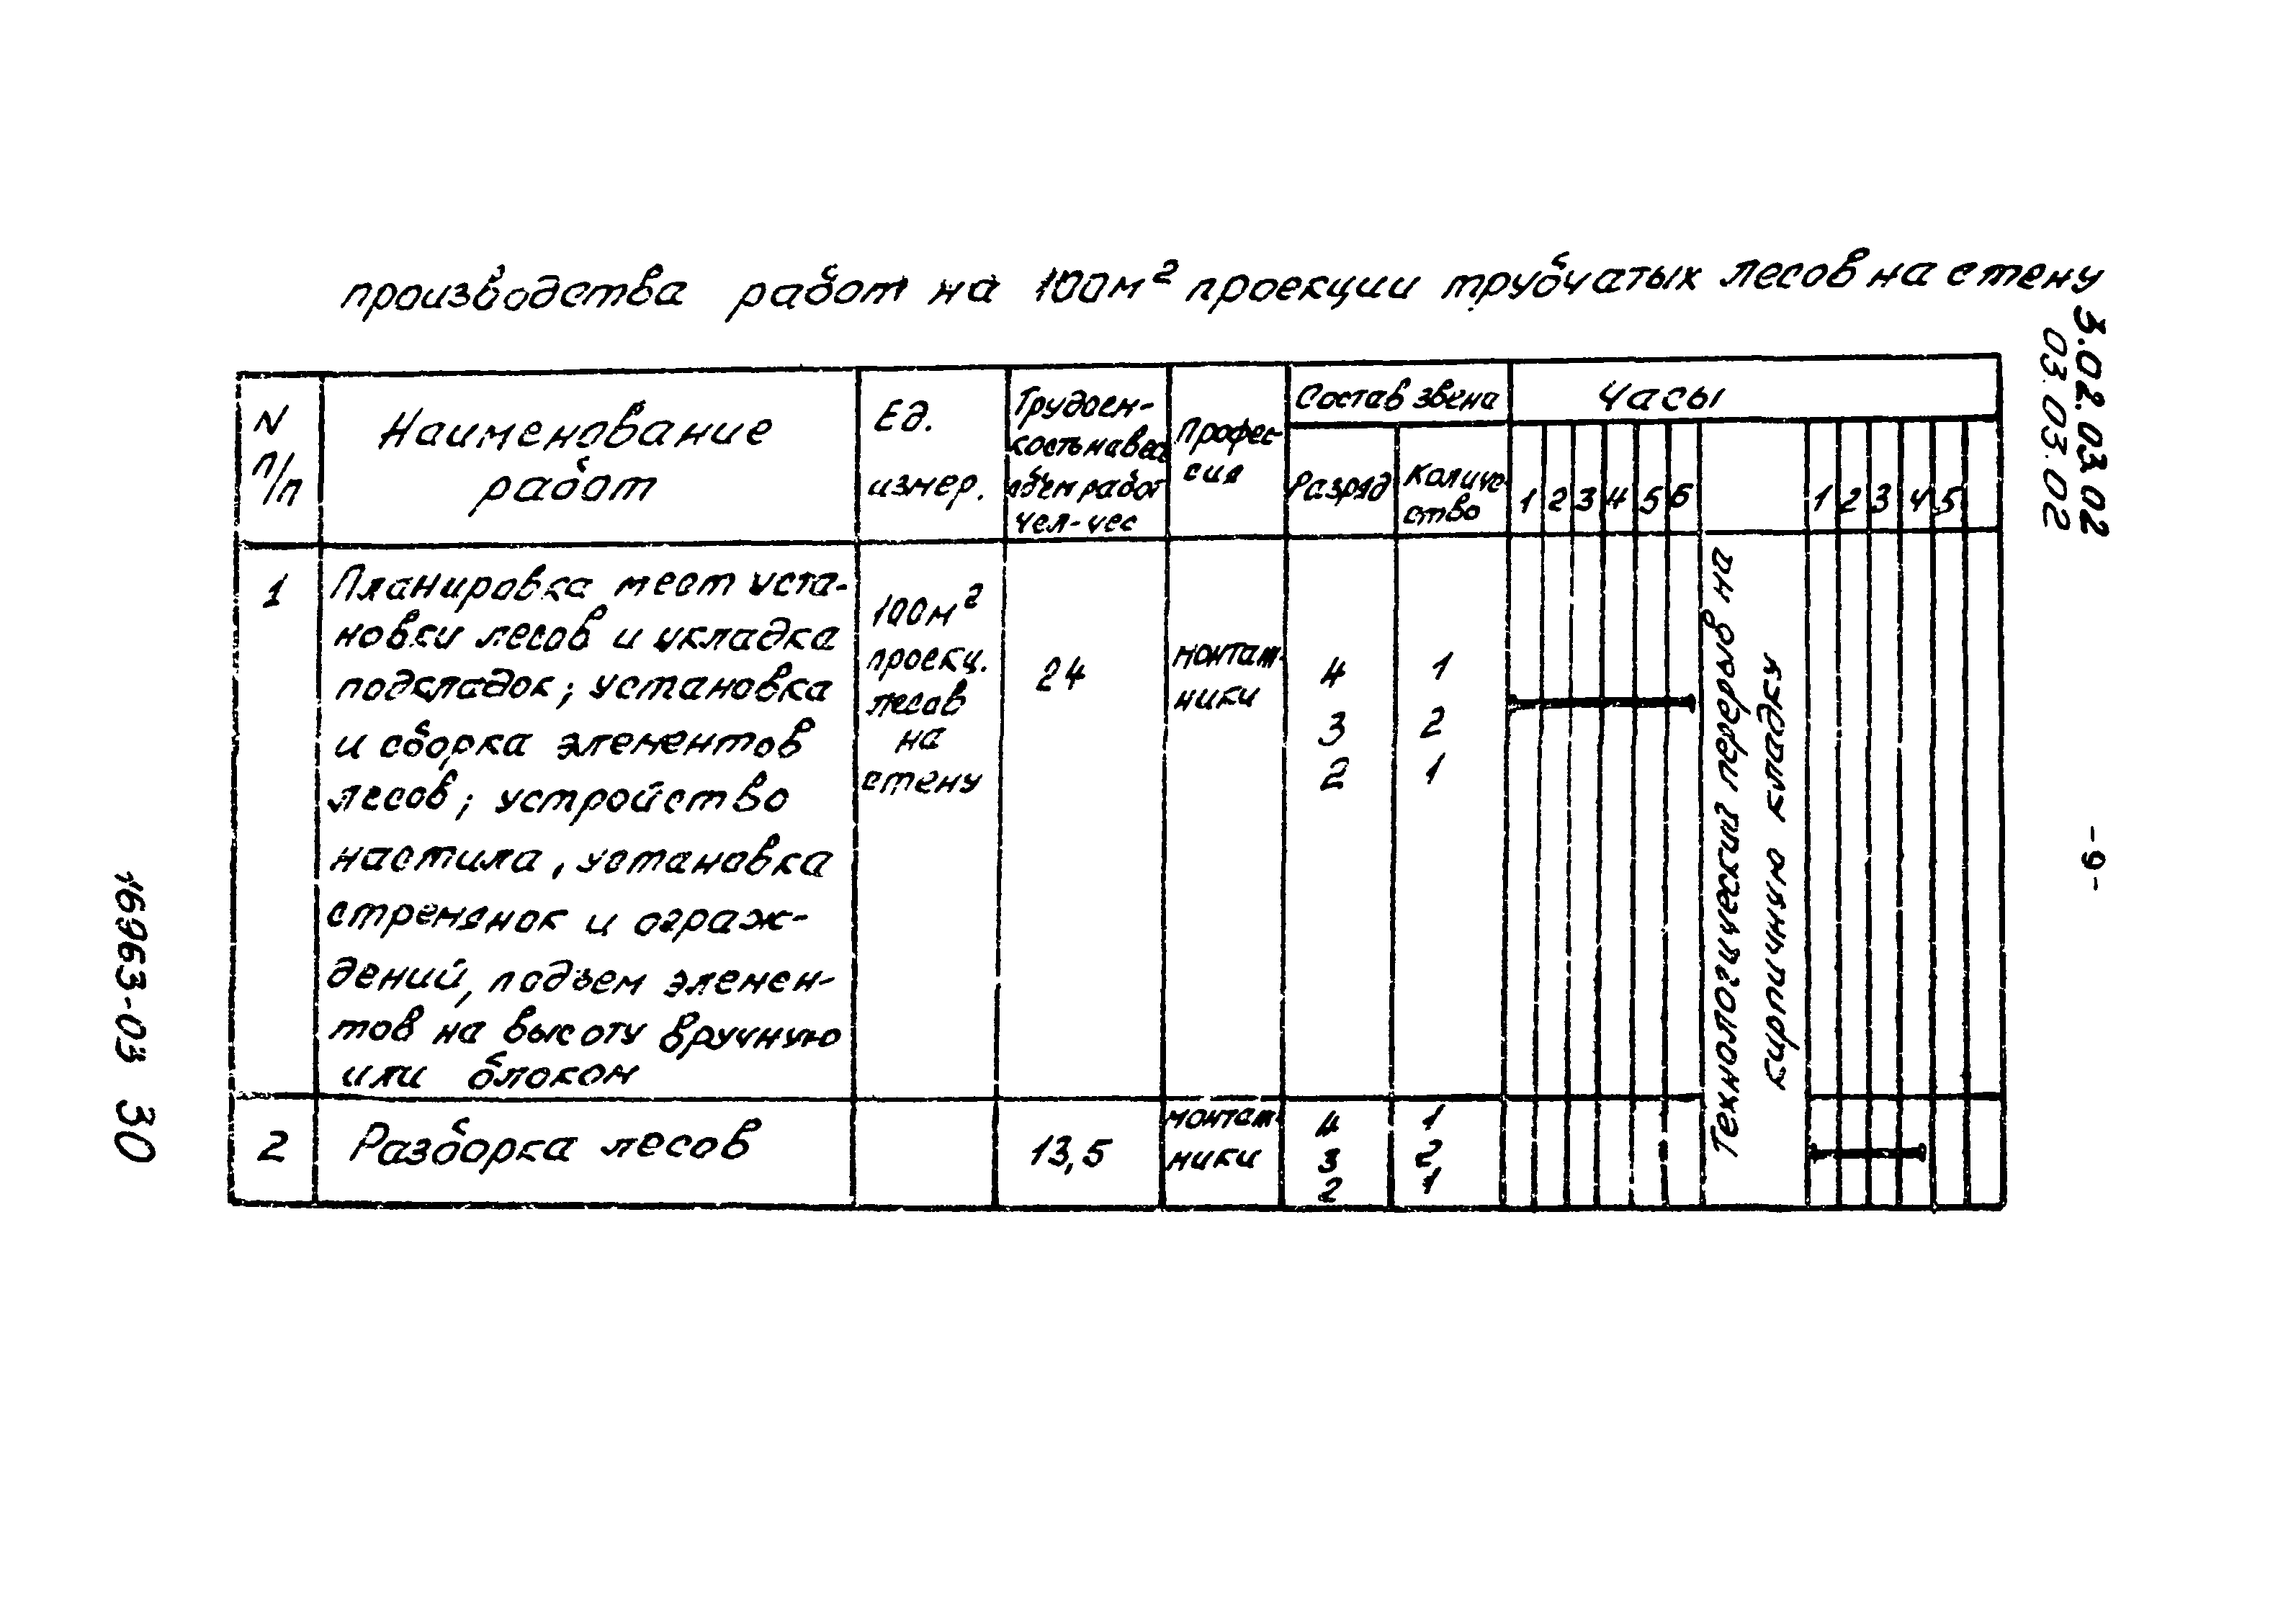 производства работ на 100м² проекции трубчатых лесов на стену
3.02.03.02
03.03.02
N
п/п
Наименование
работ
Ед.
измер.
Трудоем-
кость на весь
объем работ
чел-час
Профес-
сия
Состав звена
Разряд
Количе-
ство
Часы
1 2 3 4 5 6
1 2 3 4 5
1
Планировка мест уста-
новки лесов и укладка
подкладок; установка
и сборка элементов
лесов; устройство
настила, установка
стремянок и ограж-
дений, подъем элемен-
тов на высоту вручную
или блоком
100м²
проекц.
лесов
на
стену
24
монтаж-
ники
4 1
3 2
2 1
Технологический перерыв на
кирпичную кладку
2
Разборка лесов
13,5
монтаж-
ники
4 1
3 2
2 1
-9-
16963-03 30